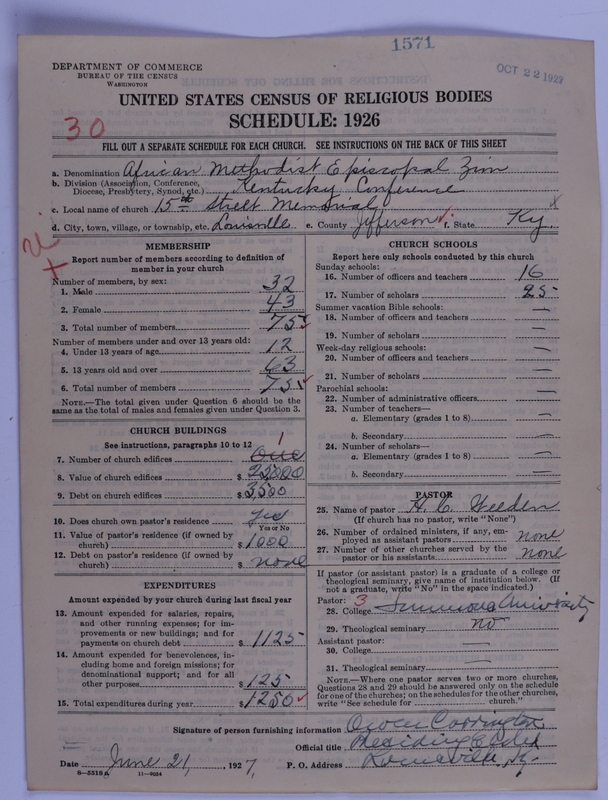 1571
OCT 22 1927
DEPARTMENT OF COMMERCE
BUREAU OF THE CENSUS
WASHINGTON
UNITED STATES CENSUS OF RELIGIOUS BODIES
SCHEDULE: 1926
30
FILL OUT A SEPARATE SCHEDULE FOR EACH CHURCH. SEE INSTRUCTIONS ON THE BACK OF THIS SHEET
a. Denomination African Methodist Episcopal Zion
b. Division (Association, Conference, Diocese, Presbytery, Synod, etc.) Kentucky Conference
c. Local name of church 15th Street Memorial
d. City, town, village, or township, etc. Louisville e. County Jefferson f. State Ky.
MEMBERSHIP
Report number of members according to definition of member in your church
Number of members, by sex:
1. Male 32
2. Female 43
3. Total number of members 75
Number of members under and over 13 years old:
4. Under 13 years of age 12
5. 13 years old and over 63
6. Total number of members 75
NOTE.—The total given under Question 6 should be the same as the total of males and females given under Question 3.
CHURCH BUILDINGS
See instructions, paragraphs 10 to 12
1
7. Number of church edifices One
8. Value of church edifices $ 25000
9. Debt on church edifices $ 3,500
10. Does church own pastor's residence yes
Yes or No
11. Value of pastor's residence (if owned by church) $ 1000
12. Debt on pastor's residence (if owned by church) $ none
EXPENDITURES
Amount expended by your church during last fiscal year
13. Amount expended for salaries, repairs, and other running expenses; for improvements or new buildings; and for payments on church debt $ 1125
14. Amount expended for benevolences, including home and foreign missions; for denominational support; and for all other purposes $ 125
15. Total expenditures during year $ 1250
CHURCH SCHOOLS
Report here only schools conducted by this church
Sunday schools:
16. Number of officers and teachers 16
17. Number of scholars 25
Summer vacation Bible schools:
18. Number of officers and teachers —
19. Number of scholars —
Week-day religious schools:
20. Number of officers and teachers —
21. Number of scholars —
Parochial schools:
22. Number of administrative officers —
23. Number of teachers—
a. Elementary (grades 1 to 8) —
b. Secondary —
24. Number of scholars—
a. Elementary (grades 1 to 8) —
b. Secondary —
PASTOR
25. Name of pastor H. C. Weeden
(If church has no pastor, write "None")
26. Number of ordained ministers, if any, employed as assistant pastors none
27. Number of other churches served by the pastor or his assistants none
If pastor (or assistant pastor) is a graduate of a college or theological seminary, give name of institution below. (If not a graduate, write "No" in the space indicated.)
Pastor: 3
28. College Simmons University
29. Theological seminary no
Assistant pastor:
30. College —
31. Theological seminary —
NOTE.—Where one pastor serves two or more churches, Questions 28 and 29 should be answered only on the schedule for one of the churches; on the schedules for the other churches, write "See schedule for church."
Signature of person furnishing information Owen Carrington
Official title Presiding Elder
Date June 21, 1927, P. O. Address Louisville, Ky.
8—5519a 11—9024